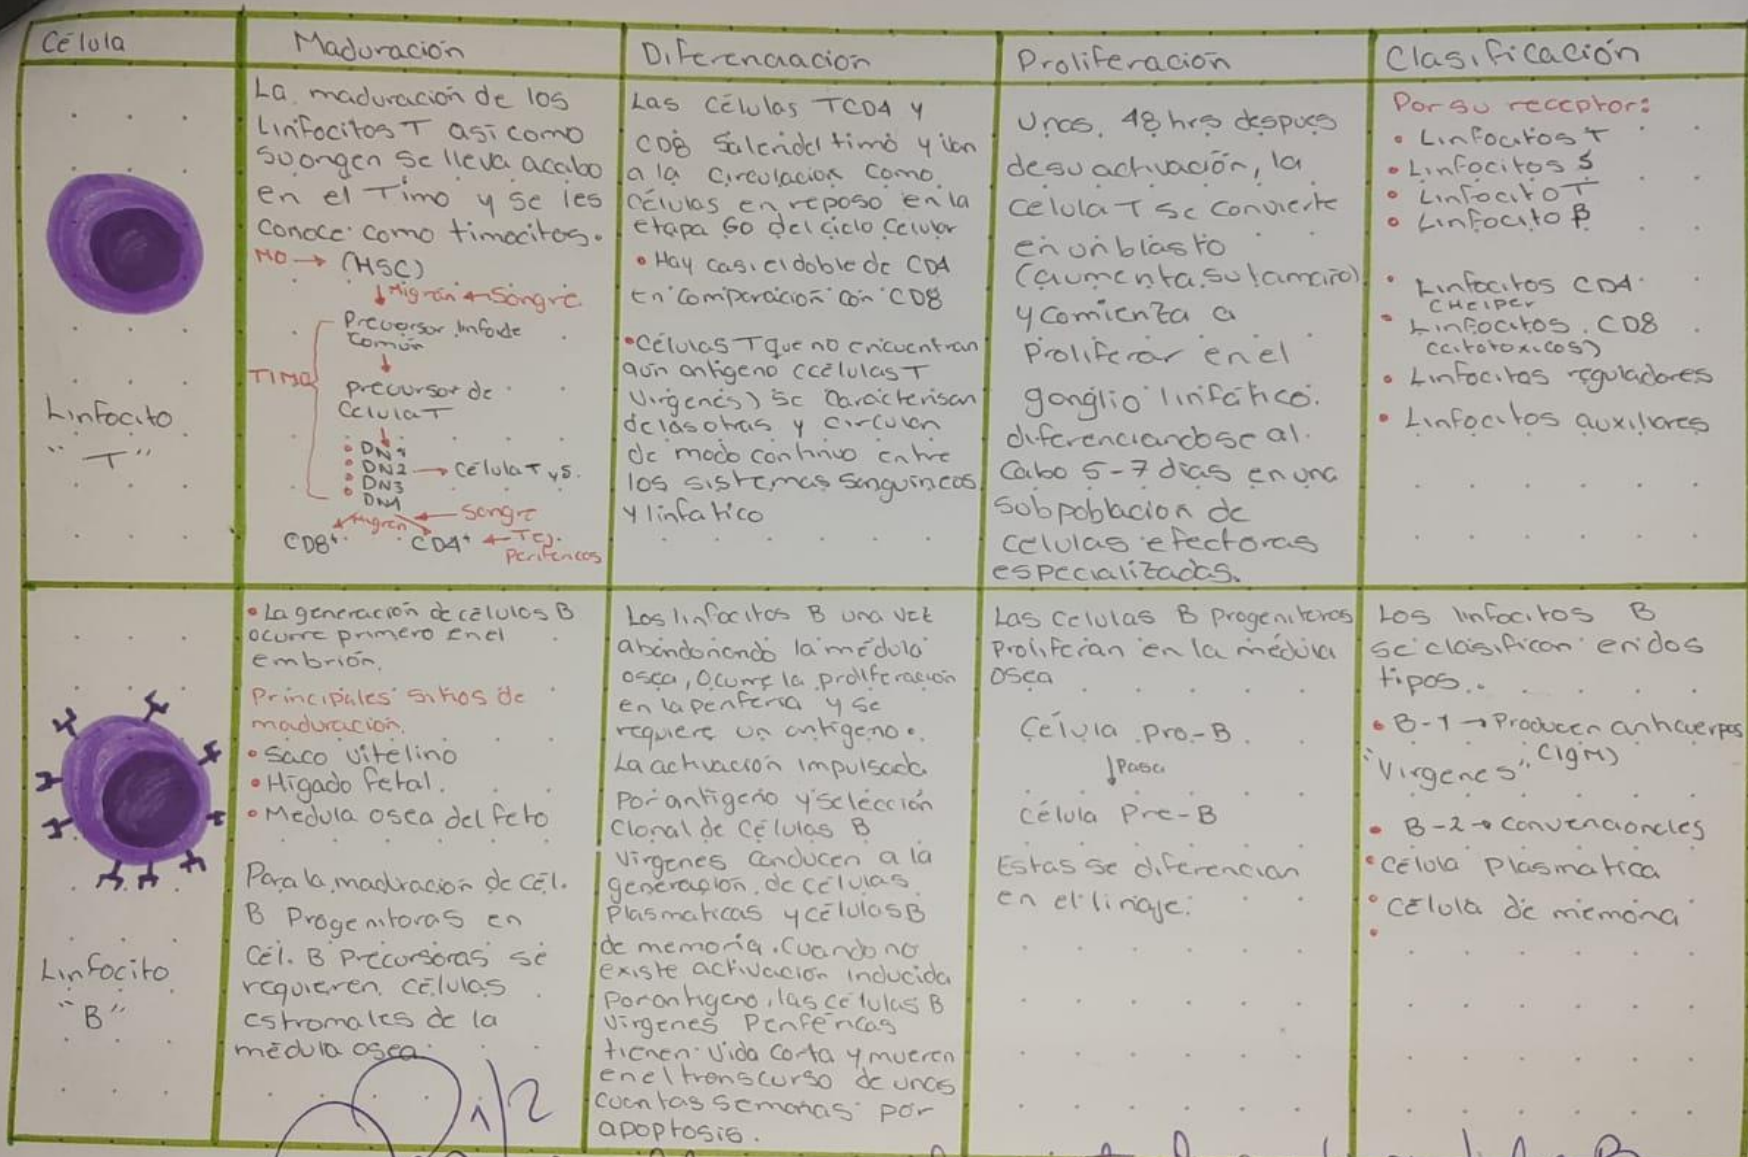 Célula
Maduración
Diferenciación
Proliferación
Clasificación
Linfocito
"T"
La maduración de los
Linfocitos T así como
su origen se lleva acabo
en el Timo y se les
conoce como timocitos.
MO → (HSC)
↓ Migran ← Sangre
TIMO
Precursor linfoide
Común
↓
precursor de
Celula T
↓
• DN1
• DN2 → Célula T γδ.
• DN3
• DN4
migran ← Sangre
CD8+ CD4+ ← Tej.
Periféricos
Las Células TCD4 y
CD8 Salen del timo y van
a la Circulacion como
Células en reposo en la
etapa G0 del ciclo Celular
• Hay casi el doble de CD4
en comparación con CD8
• Células T que no encuentran
aún antígeno (células T
Virgenes) se caracterisan
de las otras y circulan
de modo continuo entre
los sistemas sanguineos
y linfatico
Unas 48 hrs despues
de su activación, la
celula T se convierte
en un blasto
(aumenta su tamaño)
y comienza a
Proliferar en el
ganglio linfático.
diferenciandose al
Cabo 5-7 dias en una
Subpoblacion de
celulas efectoras
especializadas.
Por su receptor:
• Linfocitos T
• Linfocitos
• Linfocito T
• Linfocito β
• Linfocitos CD4
(Helper
• Linfocitos CD8
(citotoxicos)
• Linfocitos reguladores
• Linfocitos auxiliares
Linfocito
"B"
• La generación de células B
ocurre primero en el
embrión.
Principales sitios de
maduración.
• Saco vitelino
• Higado Fetal.
• Medula osea del feto
Para la maduración de cél.
B Progenitoras en
Cél. B Precursoras se
requieren células
estromales de la
médula osea.
Los linfocitos B una vez
abandonando la médula
osea, Ocurre la proliferación
en la periferia y se
requiere un antígeno.
La activación impulsada
Por antigeno y selección
Clonal de Células B
Virgenes conducen a la
generación de células
Plasmaticas y células B
de memoria. Cuando no
existe activación inducida
Por antigeno, las células B
Virgenes Periféricas
tienen vida corta y mueren
en el transcurso de unas
cuantas semanas por
apoptosis.
Las Celulas B Progenitoras
Proliferan en la médula
Osea
Célula Pro-B
↓ Pasa
célula Pre-B
Estas se diferencian
en el linaje:
Los linfocitos B
se clasifican en dos
tipos..
• B-1 → Producen anticuerpos
"Virgenes" (IgM)
• B-2 → convencionales
• Célula Plasmatica
• Célula de memoria